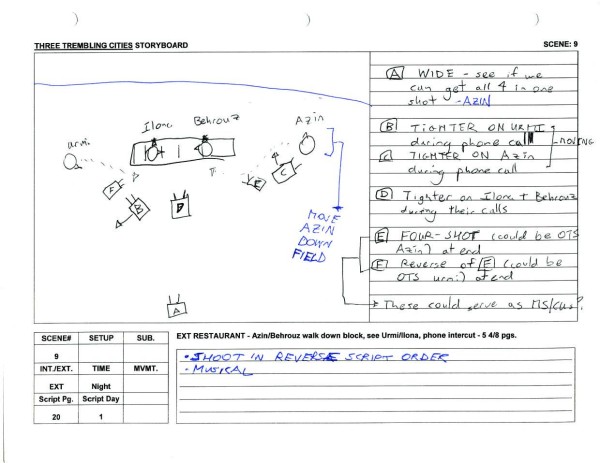 THREE TREMBLING CITIES STORYBOARD
SCENE: 9
Ilona
Behrouz
Azin
urmi
F
B
D
E
C
A
MOVE
AZIN
DOWN
FIELD
A WIDE - see if we
can get all 4 in one
shot - AZIN
B TIGHTER ON URMI
during phone call
C TIGHTER ON Azin
during phone call
MOVING
D Tighter on Ilona + Behrouz
during their calls
E FOUR-SHOT (could be OTS
Azin) at end
F Reverse of E (could be
OTS urmi) at end
These could serve as MS/CUs?
SCENE# SETUP SUB.
9
INT./EXT. TIME MVMT.
EXT Night
Script Pg. Script Day
20 1
EXT RESTAURANT - Azin/Behrouz walk down block, see Urmi/Ilona, phone intercut - 5 4/8 pgs.
• SHOOT IN REVERSE SCRIPT ORDER
- MUSICAL